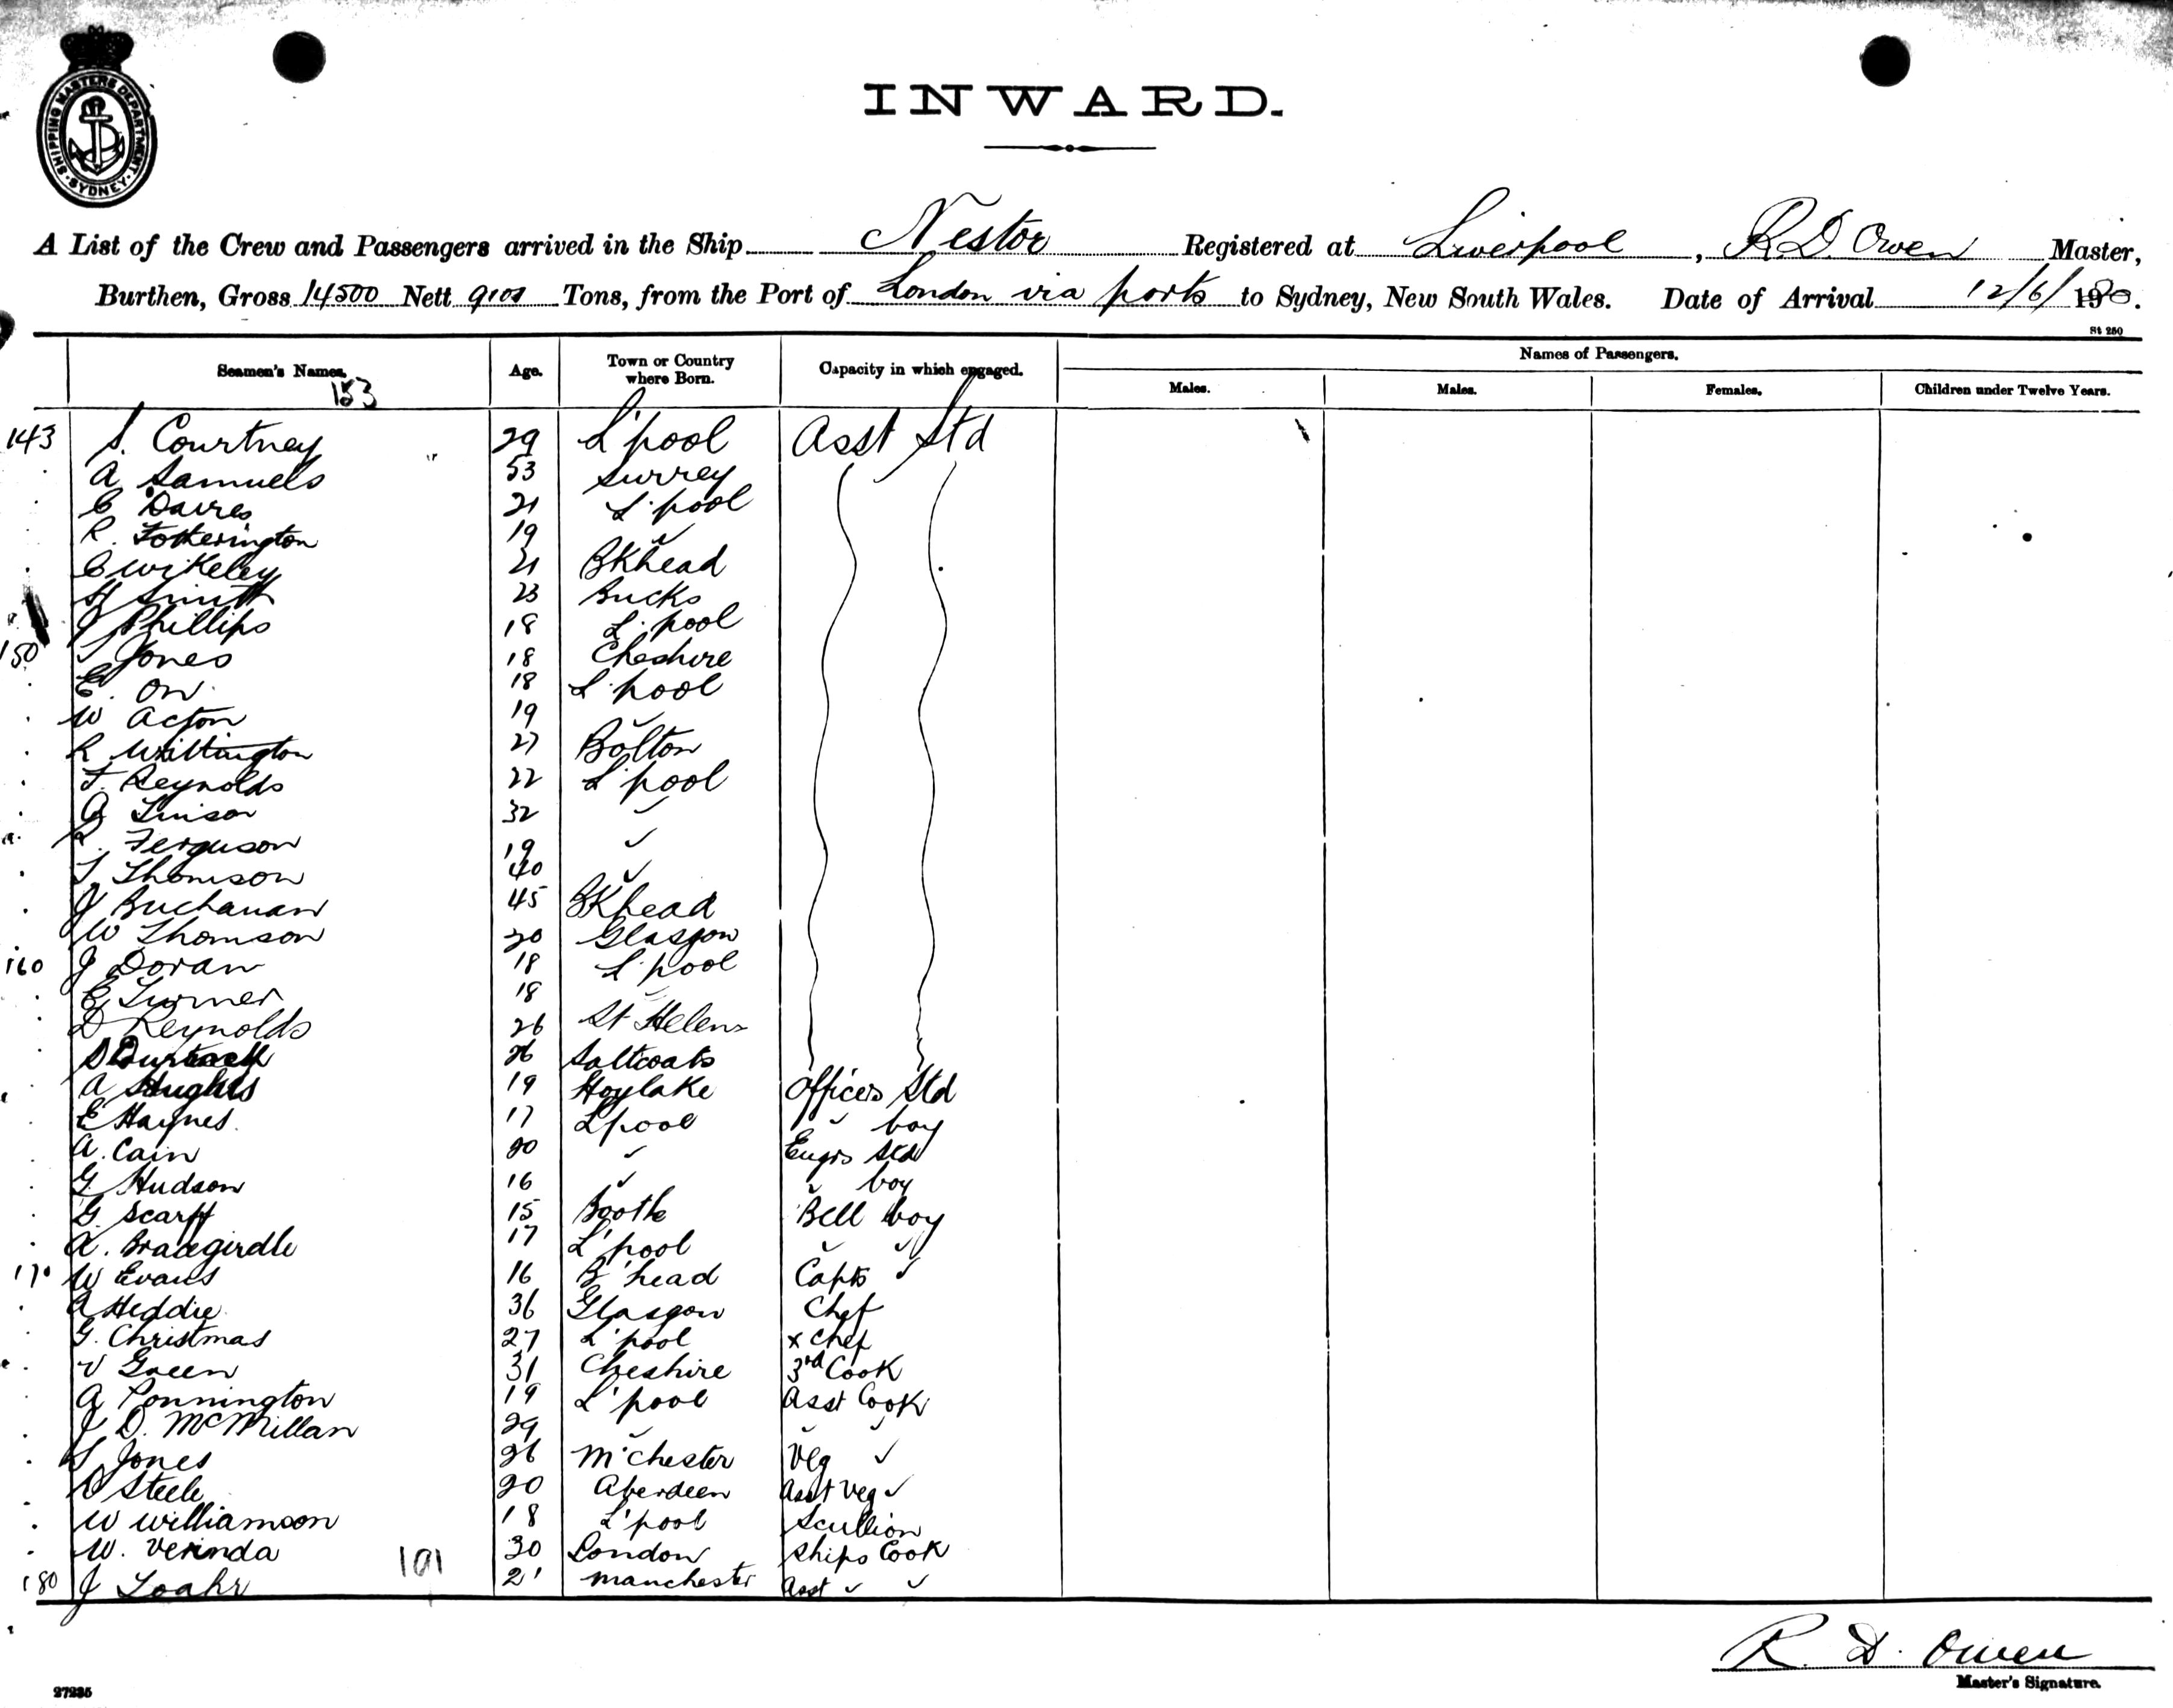 SHIPPING MASTERS DEPARTMENT SYDNEY
INWARD.
A List of the Crew and Passengers arrived in the Ship Nestor Registered at Liverpool, R.D. Owen Master,
Burthen, Gross 14500 Nett Tons, from the Port of London via ports to Sydney, New South Wales. Date of Arrival 12/6/
St 250
Seamen's Names. Age. Town or Country where Born. Capacity in which engaged. Names of Passengers.
Males. Males. Females. Children under Twelve Years.
153
143 S. Courtney 29 L'pool Asst Std
A Samuels 53 Surrey
C Davies 21 L'pool
R. Fotherington 19 "
C Wikeley 21 BKhead
H Smith 23 Bucks
J Phillips 18 L'pool
150 Jones 18 Cheshire
E. 18 L'pool
W Acton 19 "
R Wittington 27 Bolton
F. Reynolds 22 L'pool
32 "
Ferguson 19 "
T Thomson 40 "
J Buchanan 45 BKhead
W Thomson 20 Glasgow
160 J Doran 18 L'pool
E Turner 18 "
D Reynolds 26 St Helens
26 Saltcoats
A Hughes 19 Hoylake Officers Std
E Haynes. 17 Lpool " boy
A. Cain 20 " Engrs Std
G Hudson 16 " " boy
G Scarff 15 Bootle Bell boy
A. Bracegirdle 17 L'pool " "
170 W Evans 16 B'head Capts "
A Heddie 36 Glasgow Chef
G. Christmas 27 L'pool x Chef
V Green 31 Cheshire 3rd Cook
A Pennington 19 L'pool Asst Cook
J D. McMillan 29 " " "
Jones 26 M'chester Veg "
Steele 20 Aberdeen Asst Veg "
W Williamson 18 L'pool Scullion
W. Verinda 30 London Ships Cook
180 J 21 Manchester Asst " "
R. D. Owen
Master's Signature.
27235